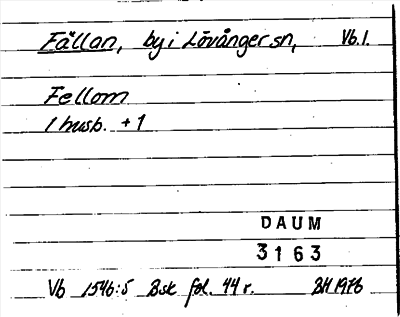 Fällan, by i Lövånger sn, Vb.l.
Fellom
1 husb. + 1
DAUM
3163
Vb 1546:5 Bsk fol. 44 r. BH 1976